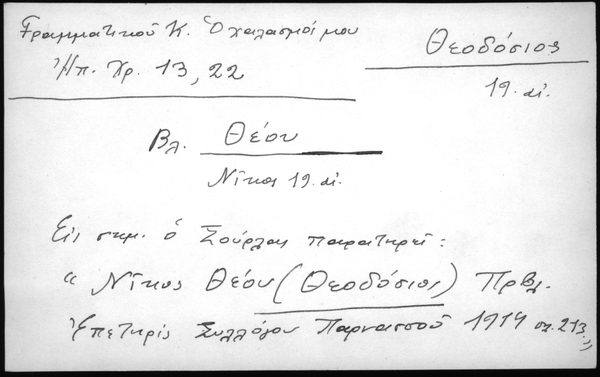 Γραμματικοῦ Κ. Ὁ χαλασμός μου
Ἠπ. Χρ. 13, 22
Θεοδόσιος
19. αἰ.
Βλ. Θέου
Νῖκος 19. αἰ.
Εἰς σημ. ὁ Σούρλας παρατηρεῖ:
“ Νῖκος Θέου (Θεοδόσιος) Πρβλ.
Ἐπετηρὶς Συλλόγου Παρνασσοῦ 1914 σ. 213.”